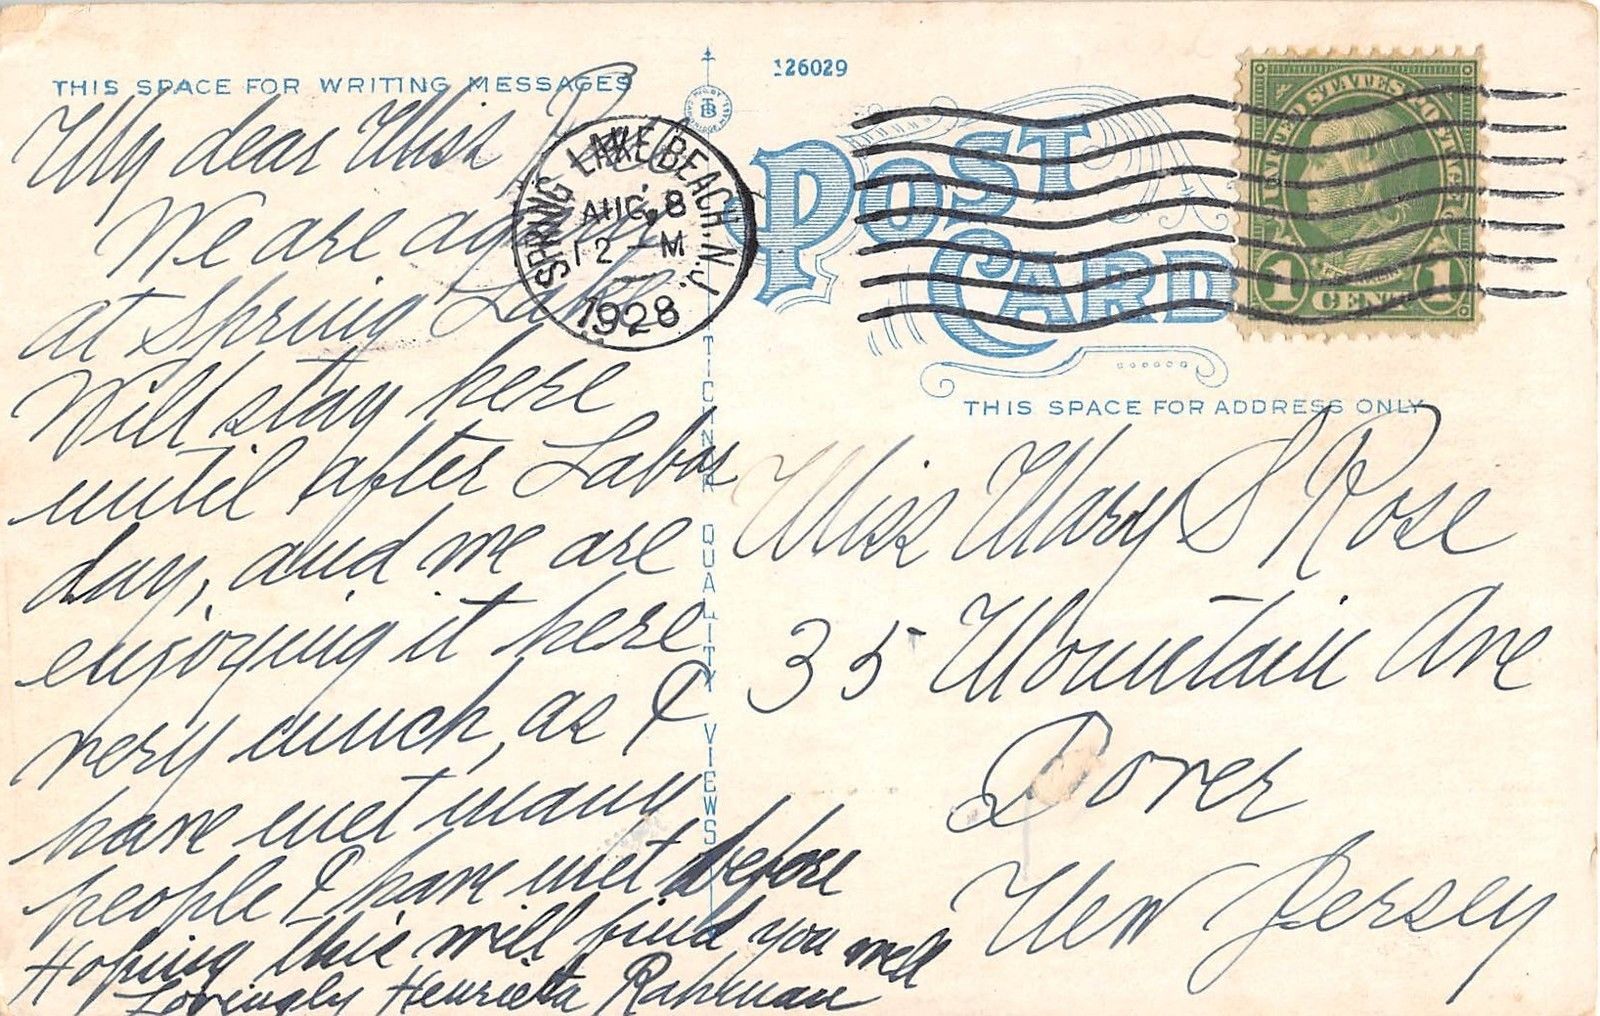 THIS SPACE FOR WRITING MESSAGES
My dear Miss Rose
We are again
at Spring Lake
Will stay here
until after Labor
day, and we are
enjoying it here
very much, as I
have met many
people I have met before
Hoping this will find you well
Lovingly Henrietta Rahrman
SPRING LAKE BEACH. N.J.
AUG. 8
12 - M
1928
126029
POST CARD
UNITED STATES POSTAGE
1 CENT 1
THIS SPACE FOR ADDRESS ONLY
Miss Mary S Rose
35 Mountain Ave
Dover
New Jersey
QUALITY VIEWS